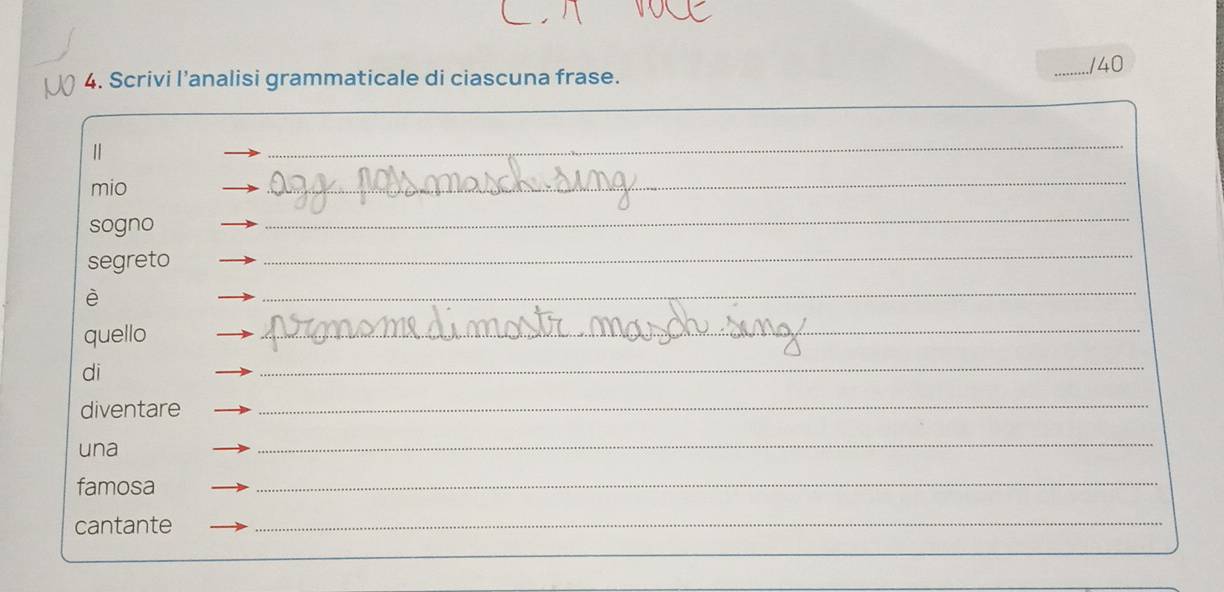 C. A VOCE
NO 4. Scrivi l'analisi grammaticale di ciascuna frase. ........./40
Il
mio agg. poss. masch. sing
sogno
segreto
è
quello pronome dimostr. masch. sing
di
diventare
una
famosa
cantante